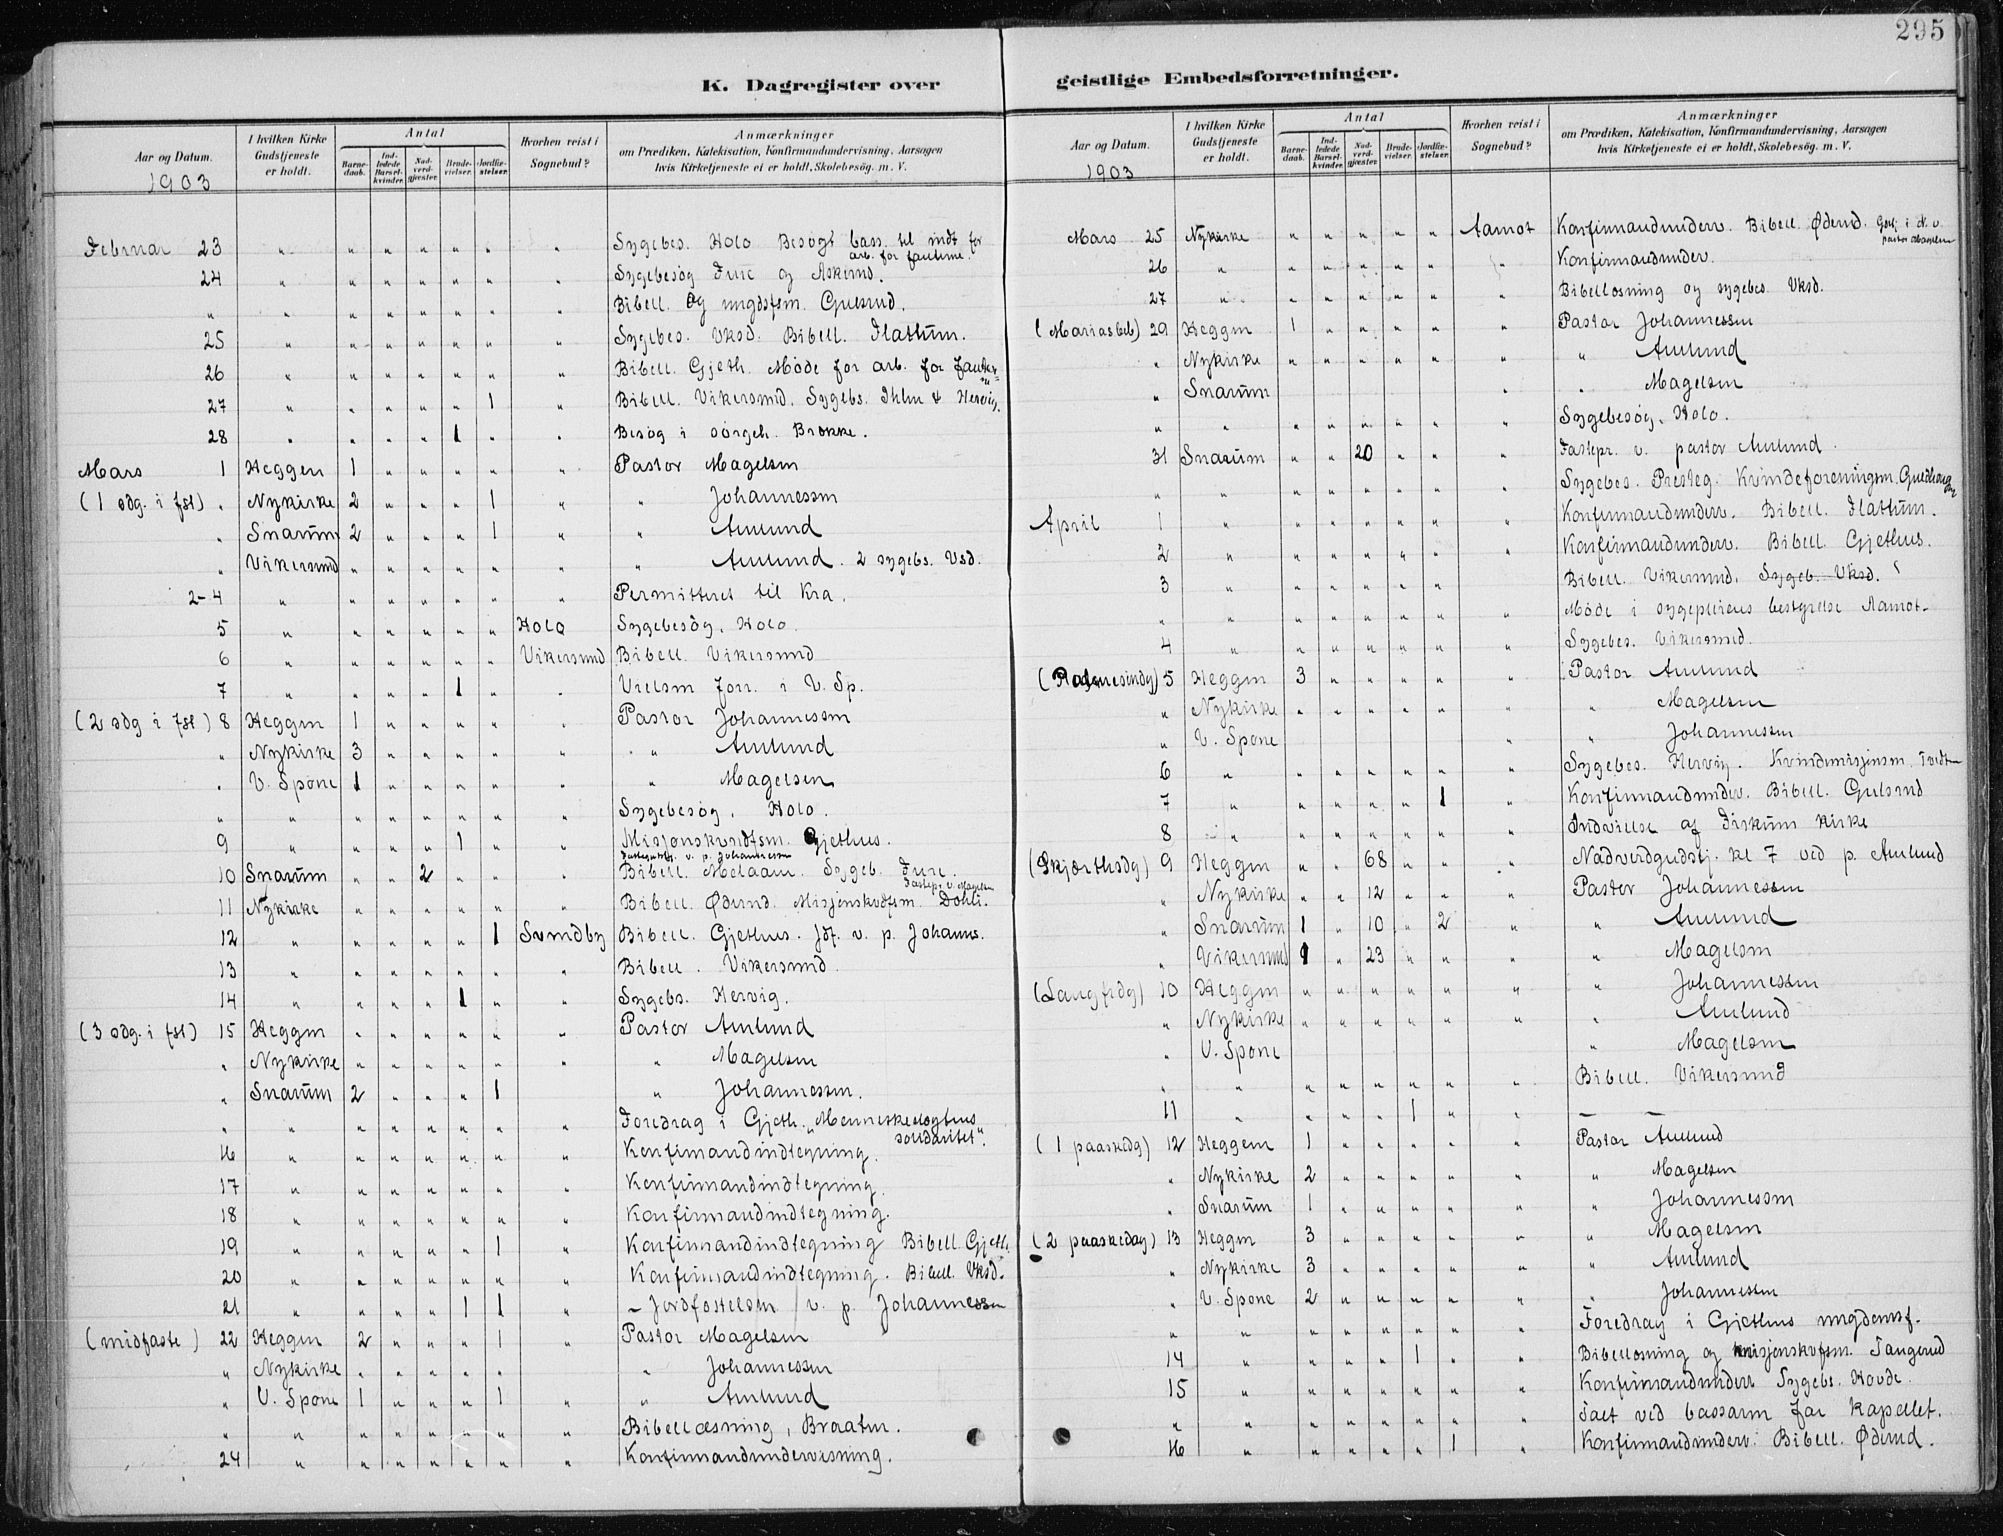 295
K. Dagregister over geistlige Embedsforretninger.
Aar og Datum. | I hvilken Kirke Gudstjeneste er holdt. | Antal | Barnedaab. | Indledede Barselkvinder. | Nadverdgjester. | Brudevielser. | Jordfæstelser. | Hvorhen reist i Sognebud? | Anmærkninger om Prædiken, Katekisation, Konfirmandundervisning, Aarsagen hvis Kirketjeneste ei er holdt, Skolebesøg. m. V.
1903
Februar 23 " " " " " " " Sygebes. Holo Besøgt bass. til indt for arb. for fantene.
24 " " " " " " " Sygebesøg Fure og Askerud.
" " " " " " " " Bibell. og ungdsfsm. Gulsrud.
25 " " " " " " " Sygebes. Vksd. Bibell. Flattum.
26 " " " " " " " Bibell. Gjeth. Møde for arb. for fantene
27 " " " " " 1 " Bibell. Vikersund. Sygebs. Ihlen & Hervig.
28 " " " " 1 " " Besøg i sørgeh. Brokke.
Mars 1 Heggen 1 " " " " " Pastor Magelsen
(1 sdg. i fst) " Nykirke 2 " " " 1 " " Johannessen
" Snarum 2 " " " 1 " " Amlund
" Vikersund " " " " " " " Amlund. 2 sygebs. Vsd.
2-4 " " " " " " " Permitteret til Kra.
5 " " " " " " Holo Sygebesøg, Holo.
6 " " " " " " Vikersund Bibell. Vikersund
7 " " " " 1 " " Vielsen forr. i V. Sp.
(2 sdg i fst) 8 Heggen 1 " " " " " Pastor Johannessen
" Nykirke 3 " " " " " " Amlund
" V. Spone 1 " " " " " " Magelsen
" " " " " " " " Sygebesøg, Holo.
9 " " " " 1 " " Misjonskvindfsm. Gjethus.
Fastegudstj. v. p. Johannessen
10 Snarum " " 2 " " " Bibell. Melaaen. Sygeb. Fure.
Fastepr. v. Magelsen
11 Nykirke " " " " " " Bibell. Øderud. Misjonskvdfsm. Dohli.
12 " " " " " 1 Svendby Bibell. Gjethus. Jdf. v. p. Johanns.
13 " " " " " " " Bibell. Vikersund.
14 " " " " 1 " " Sygebs. Hervig.
(3 sdg. i fst) 15 Heggen " " " " " " Pastor Amlund
" Nykirke " " " " " " " Magelsen
" Snarum 2 " " " 1 " " Johannessen.
" " " " " " " " Foredrag i Gjeth. "Menneskeslegtens solidaritet".
16 " " " " " " " Konfirmandindtegning.
17 " " " " " " " Konfirmandindtegning.
18 " " " " " " " Konfirmandindtegning.
19 " " " " " 1 " Konfirmandindtegning Bibell. Gjeth.
20 " " " " " " " Konfirmandindtegning. Bibell. Vksd.
21 " " " " 1 1 " – Jordfæstelsen v. p. Johannessen
(midfaste) 22 Heggen 2 " " " 1 " Pastor Magelsen
" Nykirke " " " " " " " Johannessen
" V. Spone 1 " " " 1 " " Amlund
" " " " " " " " Bibellæsning, Braaten.
24 " " " " " " " Konfirmandundervisning.
Aar og Datum. | I hvilken Kirke Gudstjeneste er holdt. | Antal | Barnedaab. | Indledede Barselkvinder. | Nadverdgjester. | Brudevielser. | Jordfæstelser. | Hvorhen reist i Sognebud? | Anmærkninger om Prædiken, Katekisation, Konfirmandundervisning, Aarsagen hvis Kirketjeneste ei er holdt, Skolebesøg. m. V.
1903
Mars 25 Nykirke " " " " " Aamot Konfirmandunderv. Bibell. Øderud. Gstj. i N. v. pastor Magelsen
26 " " " " " " " Konfirmandunderv.
27 " " " " " " " Bibellæsning og sygebes. Vksd.
(Mariasbeb) 29 Heggen 1 " " " " " Pastor Johannessen
" Nykirke " " " " " " " Amlund
" Snarum " " Magelsen
" " " " " " " " Sygebesøg, Holo.
31 Snarum " " 20 " " " Fastepr. v. pastor Amlund.
" " " " " " " " Sygebes. Presteg. Kvindeforeningen
April 1 " " " " " " " Konfirmandunderv. Bibell. Flattum.
2 " " " " " " " Konfirmandunderv. Bibell. Gjethus.
3 " " " " " " " Bibell. Vikersund. Sygeb. Vksd.
" " " " " " " " Møde i sygepleiens bestyrelse Aamot
4 " " " " " " " Sygebes. Vikersund.
(Palmesøndg) 5 Heggen 3 " " " " " Pastor Amlund
" Nykirke " " " " " " " Magelsen
" V. Spone " " Johannessen
6 " " " " " " " Sygebes. Hervig. Kvindemisjonsm. Tvedt
7 " " " " " 1 " Konfirmandunderv. Bibell. Gulsrud
8 " " " " " " " Indvielse af Fiskum kirke
(Skjærthsdg) 9 Heggen " " 68 " " " Nadverdgudstj. kl 7 ved p. Amlund
" Nykirke " " 12 " " " Pastor Johannessen
" Snarum 1 " 10 " 2 " " Amlund
" Vikersund 1 " 23 " " " " Magelsen
(Langfrdg) 10 Heggen " " " " " " " Johannessen
" Nykirke " " " " " " " Amlund
" V. Spone " Magelsen
" " " " " " " " Bibell. Vikersund
11 " " " " 1 " " – –
(1 paaskdg) 12 Heggen 1 " " " " " Pastor Amlund
" Nykirke 2 " " " " " " Magelsen
" Snarum 1 " " " " " " Johannessen
(2 paaskedag) 13 Heggen 3 " " " " " " Magelsen
" Nykirke 3 " " " " " " Amlund
" V. Spone 2 " " " " " " Johannessen
" " " " " " " " Foredrag i Gjethus ungdomsf.
14 " " " " 1 " " Bibellæsning og misjonskvfsm. Tangerud
15 " " " " " " " Konfirmandunderv Sygebs. Hovde.
" " " " " " " " Talt ved bassaren for kapellet.
16 " " " " " 1 " Konfirmandunderv. Bibell. Øderud.